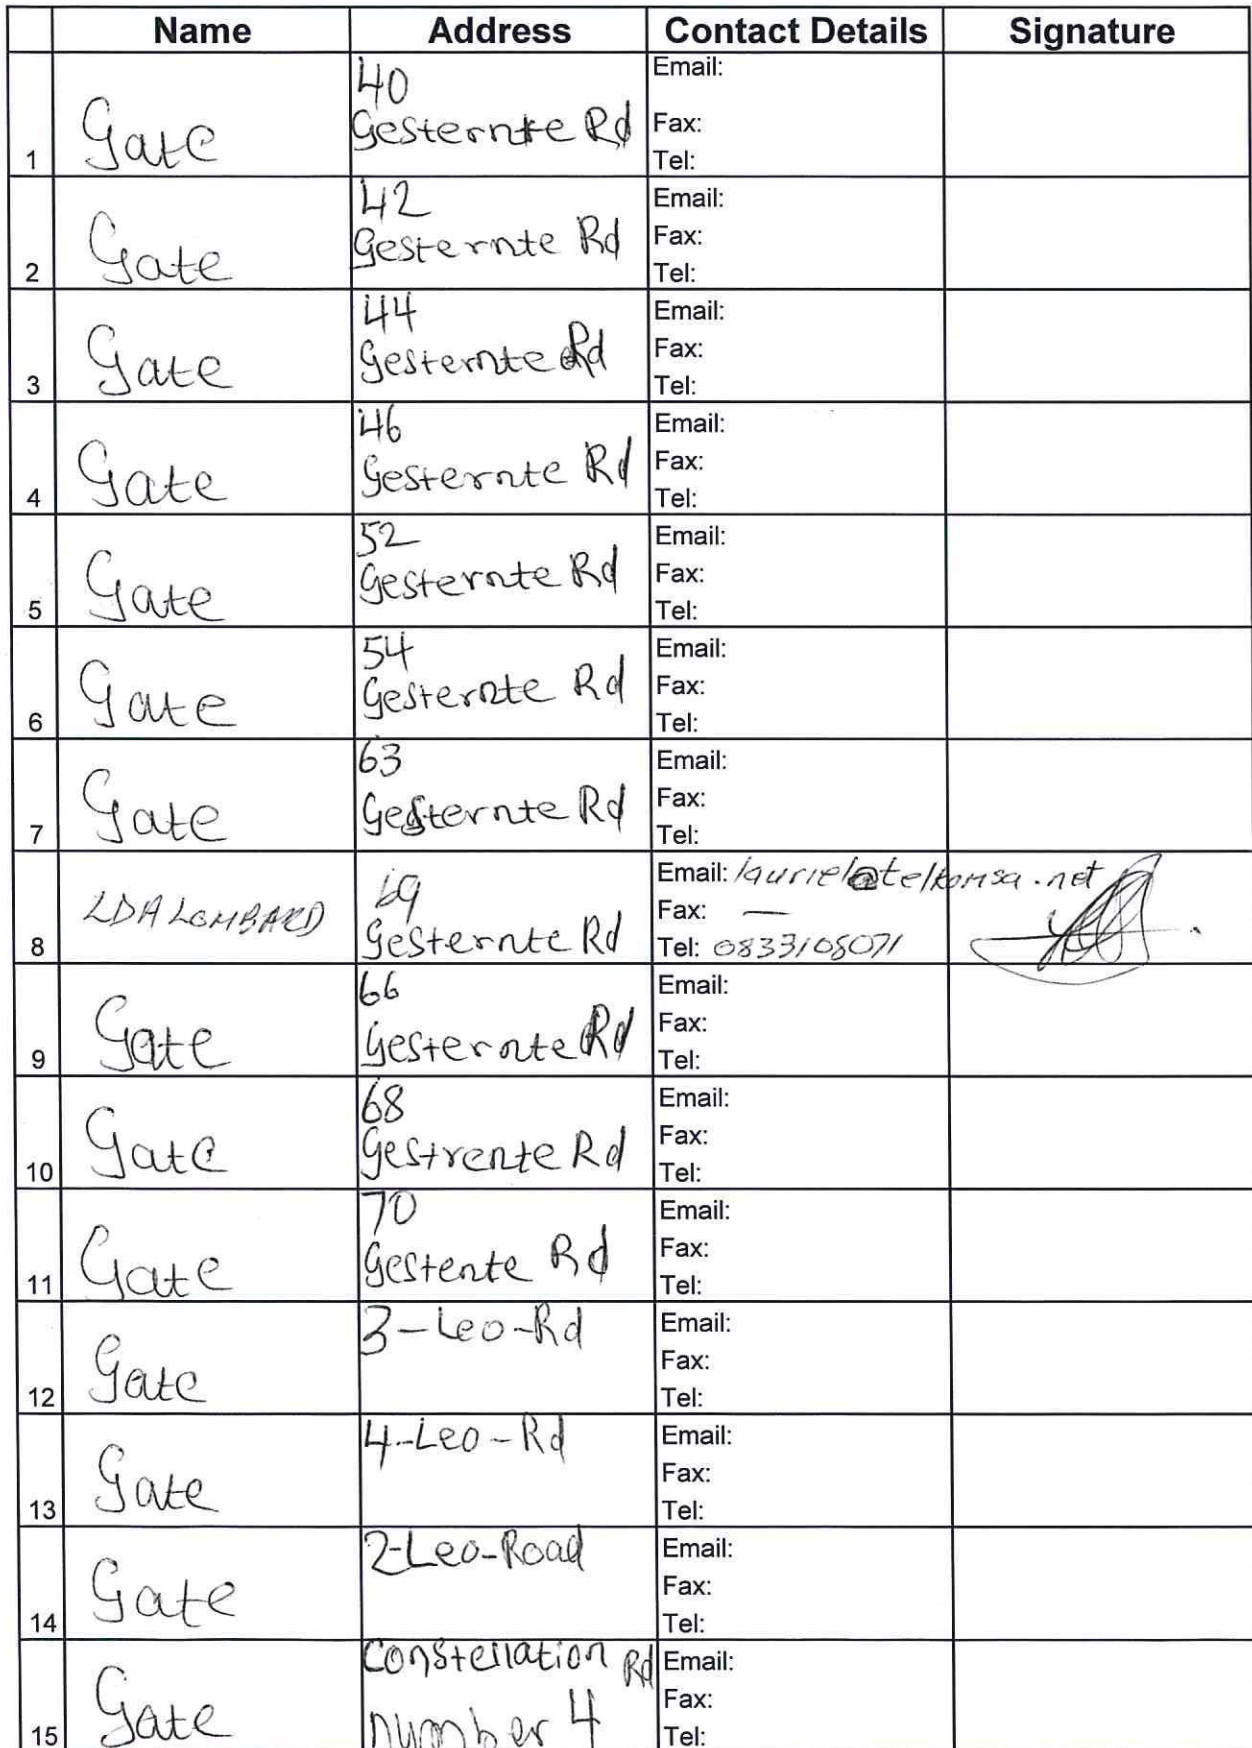 Name Address Contact Details Signature
1 Gate 40
Gesternte Rd
Email:
Fax:
Tel:
2 Gate 42
Gesternte Rd
Email:
Fax:
Tel:
3 Gate 44
Gesternte Rd
Email:
Fax:
Tel:
4 Gate 46
Gesternte Rd
Email:
Fax:
Tel:
5 Gate 52
Gesternte Rd
Email:
Fax:
Tel:
6 Gate 54
Gesternte Rd
Email:
Fax:
Tel:
7 Gate 63
Gesternte Rd
Email:
Fax:
Tel:
8 LDA LOMBARD
Gesternte Rd
Email: lauriel@telkomsa.net
Fax: —
Tel: 0833105071
9 Gate 66
Gesternte Rd
Email:
Fax:
Tel:
10 Gate 68
Gestrente Rd
Email:
Fax:
Tel:
11 Gate 70
Gestente Rd
Email:
Fax:
Tel:
12 Gate 3-Leo-Rd
Email:
Fax:
Tel:
13 Gate 4-Leo-Rd
Email:
Fax:
Tel:
14 Gate 2-Leo-Road
Email:
Fax:
Tel:
15 Gate Constellation Rd
number 4
Email:
Fax:
Tel: